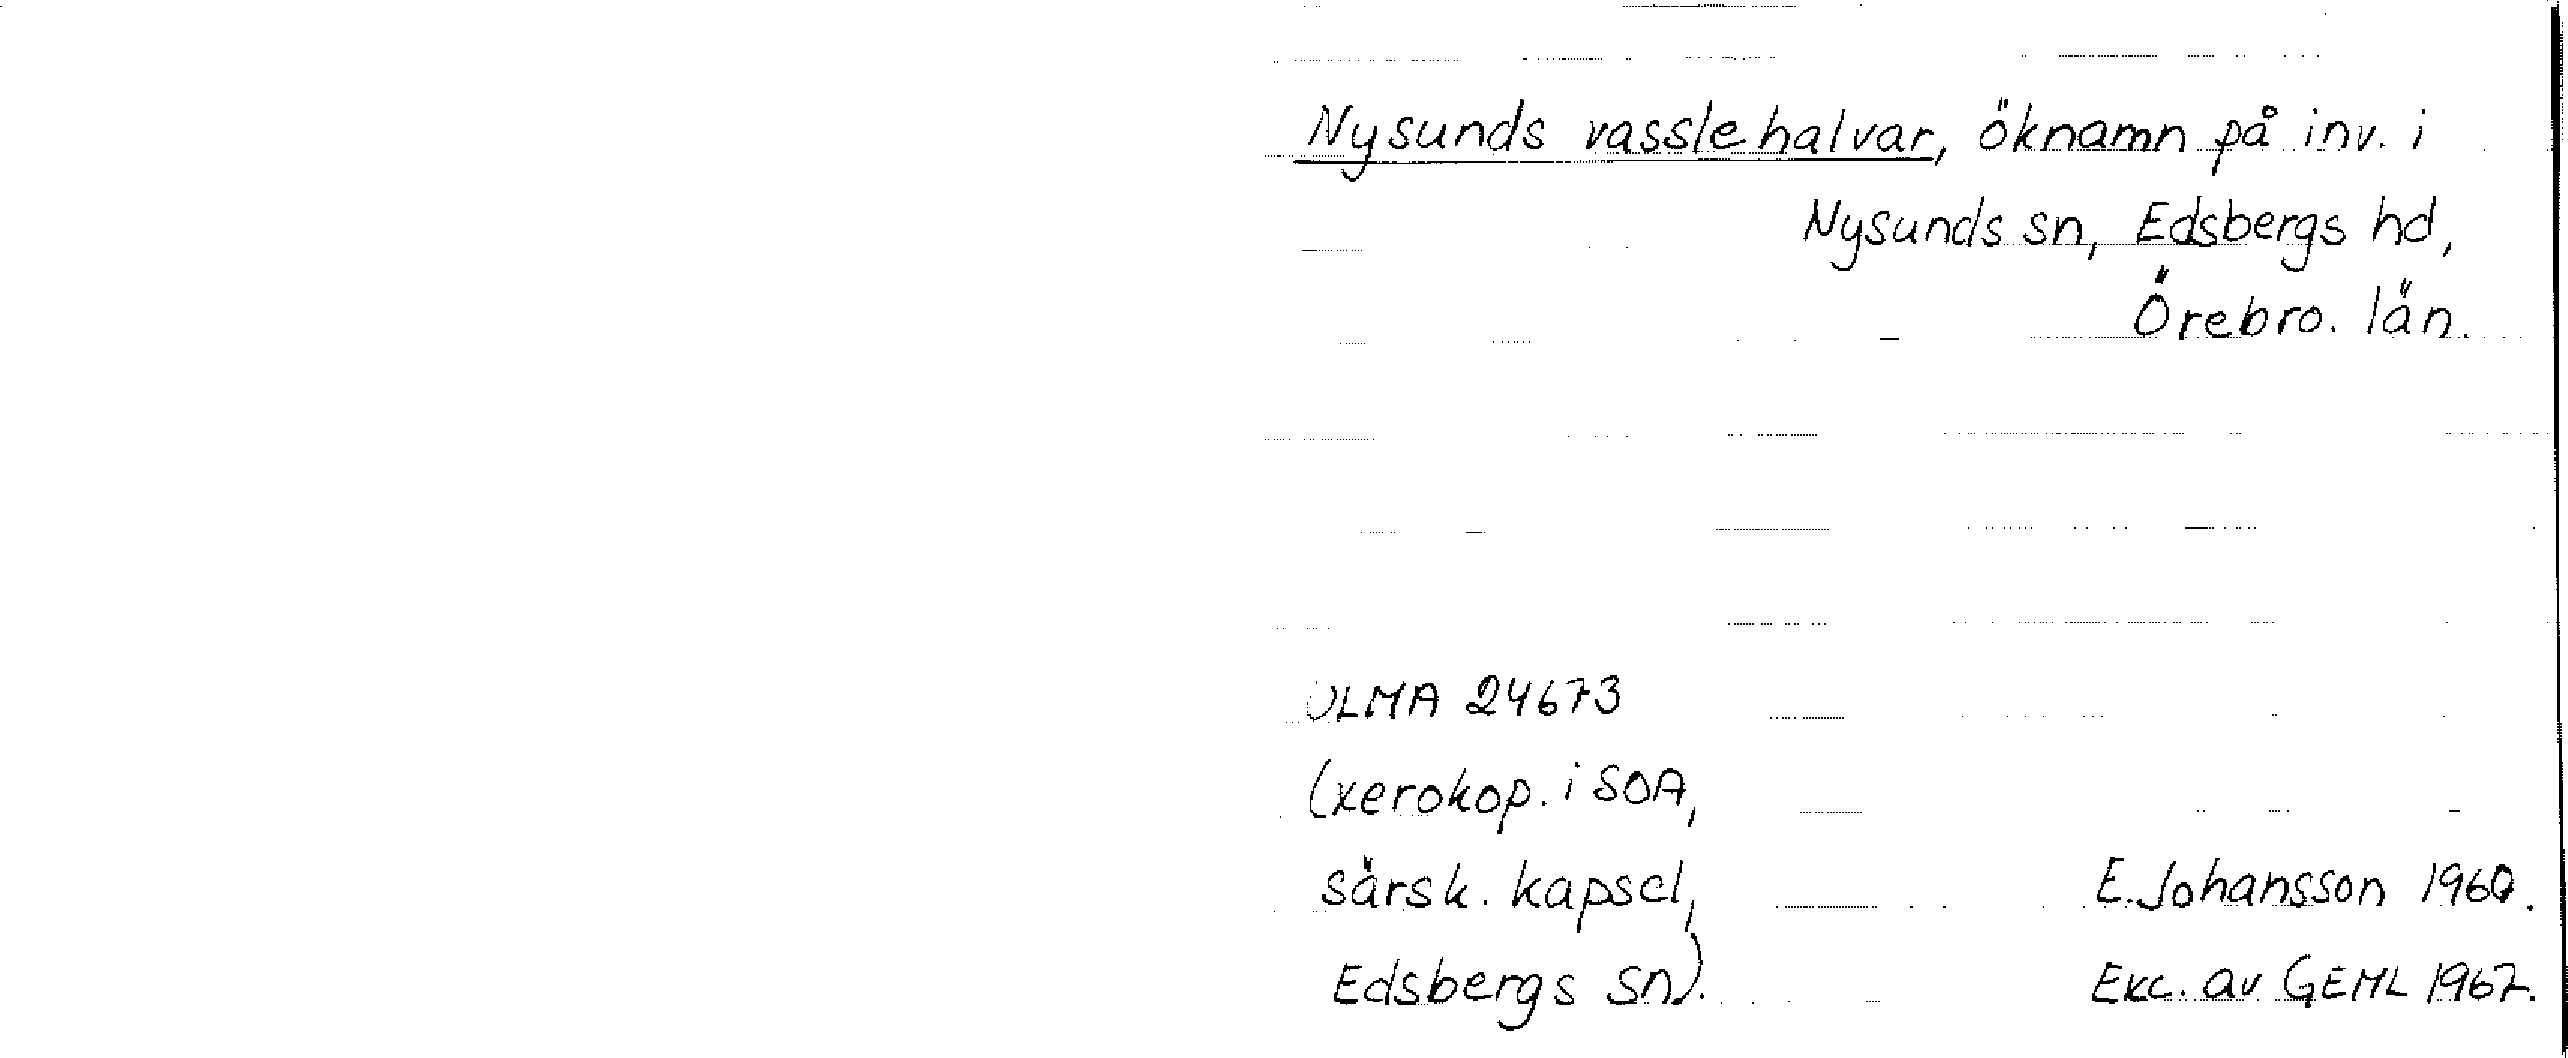 Nysunds vasslehalvar, öknamn på inv. i
Nysunds sn, Edsbergs hd,
Örebro. län.
ULMA 24673
(xerokop. i SOA,
särsk. kapsel,
Edsbergs sn).
E. Johansson 1960.
Exc. av GEML 1967.